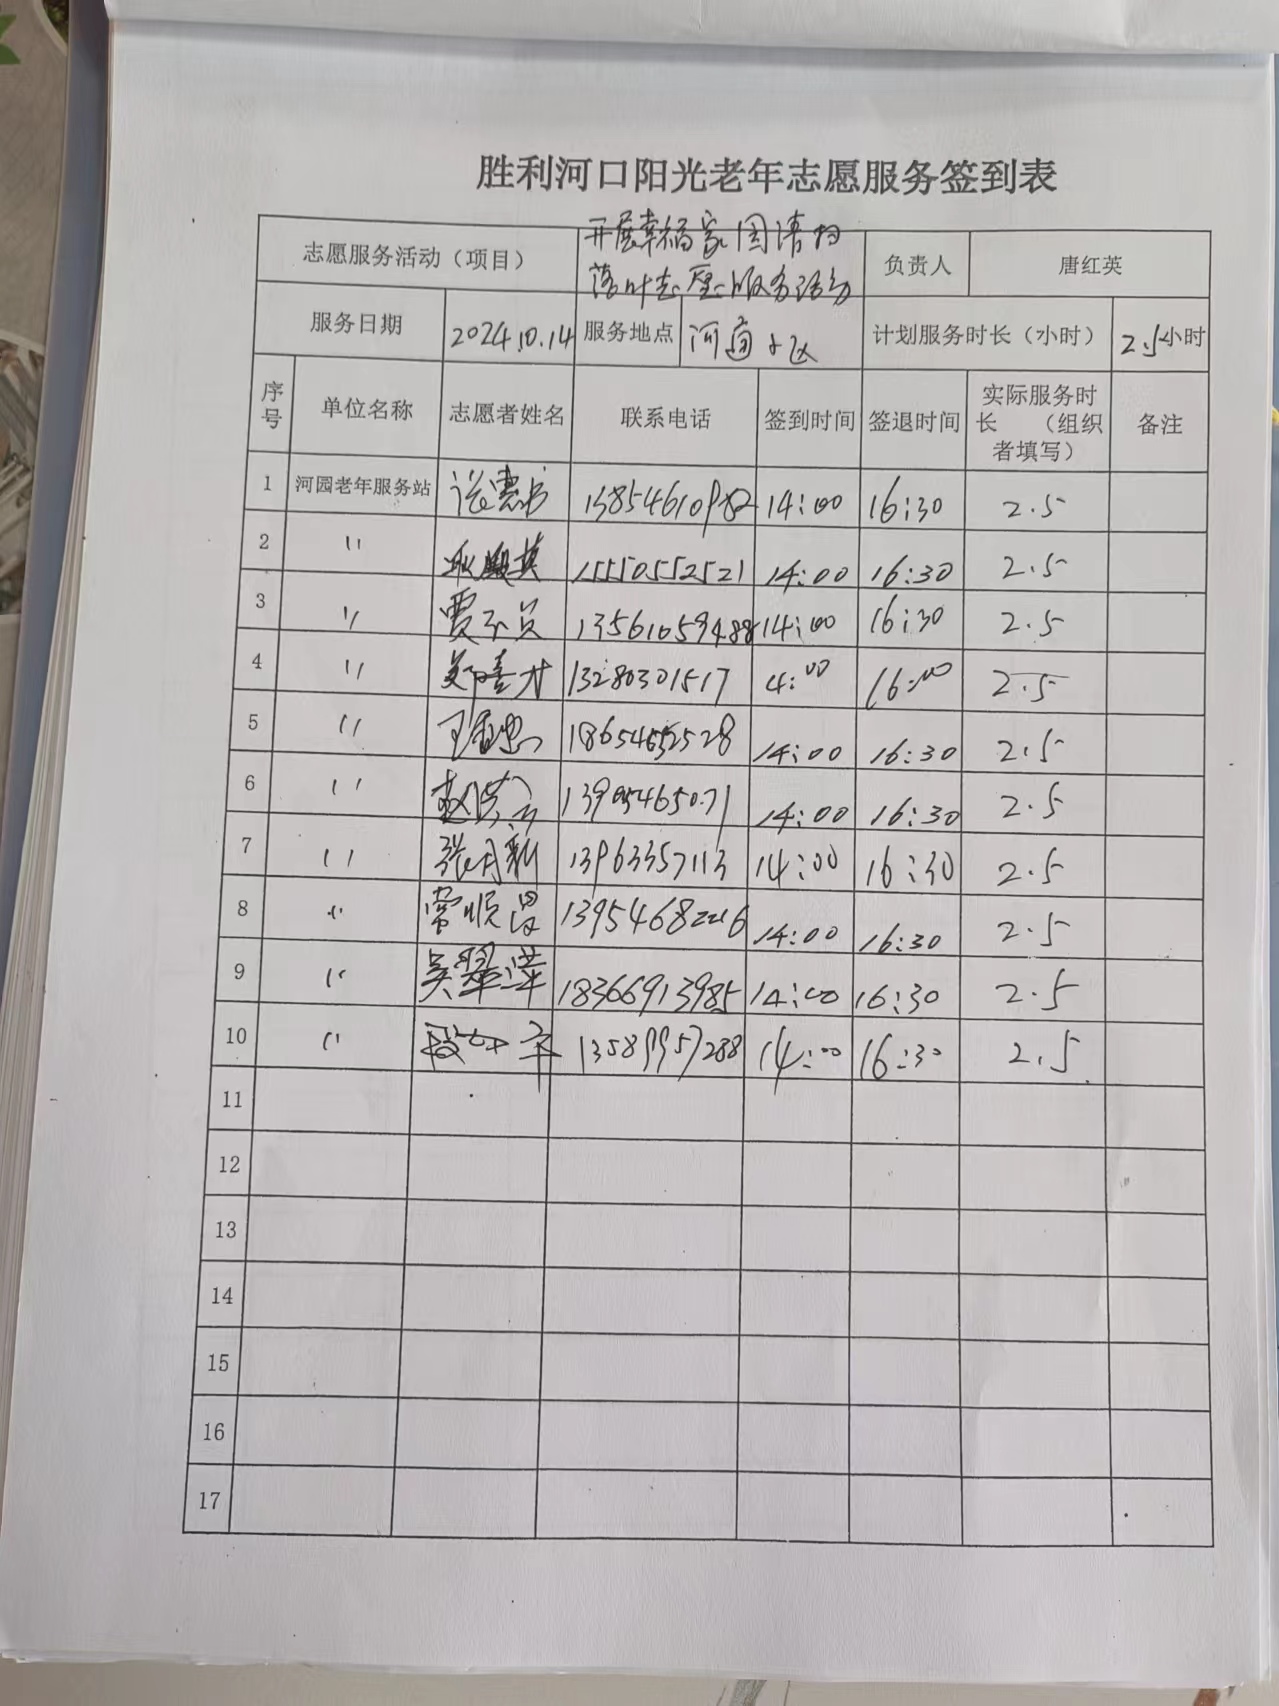 胜利河口阳光老年志愿服务签到表
志愿服务活动（项目） 开展幸福家园清扫 负责人 唐红英
落叶志愿服务活动
服务日期 2024.10.14 服务地点 河园小区 计划服务时长（小时） 2.5小时
序号 单位名称 志愿者姓名 联系电话 签到时间 签退时间 实际服务时长 （组织者填写） 备注
1 河园老年服务站 13854610982 14:00 16:30 2.5
2 〃 15550552521 14:00 16:30 2.5
3 〃 13561059488 14:00 16:30 2.5
4 〃 13280301517 4:00 16:00 2.5
5 〃 14:00 16:30 2.5
6 〃 13905465071 14:00 16:30 2.5
7 〃 张月新 13963357113 14:00 16:30 2.5
8 〃 常顺昌 13954682226 14:00 16:30 2.5
9 〃 吴翠萍 18366913985 14:00 16:30 2.5
10 〃 13589957288 14:00 16:30 2.5
11
12
13
14
15
16
17